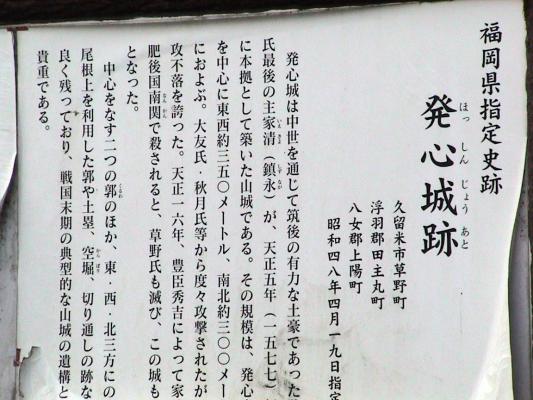 福岡県指定史跡
発心城跡
ほっしんじょうあと
久留米市草野町
浮羽郡田主丸町
八女郡上陽町
昭和四八年四月一九日指定
発心城は中世を通じて筑後の有力な土豪であった
氏最後の主家清（鎮永）が、天正五年（一五七七）
に本拠として築いた山城である。その規模は、発心
を中心に東西約三五〇メートル、南北約三〇〇メー
におよぶ。大友氏・秋月氏等から度々攻撃されたが
攻不落を誇った。天正一六年、豊臣秀吉によって家
肥後国南関で殺されると、草野氏も滅び、この城も
となった。
中心をなす二つの郭のほか、東・西・北三方にの
尾根上を利用した郭や土塁、空堀、切り通しの跡な
良く残っており、戦国末期の典型的な山城の遺構と
貴重である。